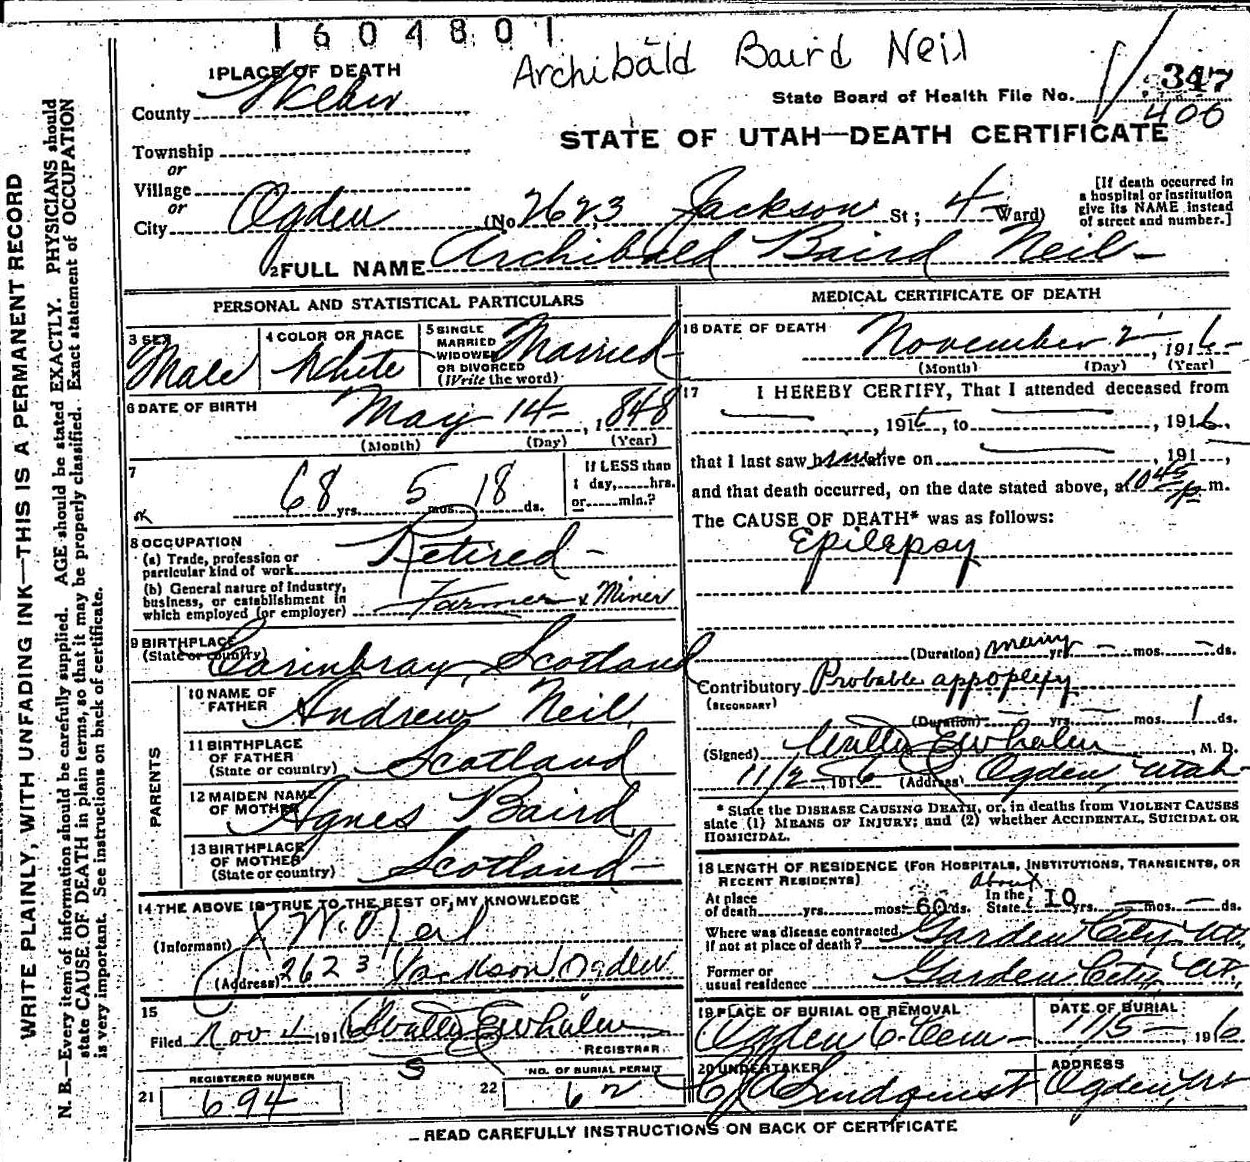 1604801
Archibald Baird Neil
1 PLACE OF DEATH
County Weber
State Board of Health File No. 347
400
STATE OF UTAH—DEATH CERTIFICATE
Township
or
Village
or
City Ogden (No 2623 Jackson St; 4 Ward)
[If death occurred in a hospital or institution give its NAME instead of street and number.]
2 FULL NAME Archibald Baird Neil
PERSONAL AND STATISTICAL PARTICULARS
3 SEX Male
4 COLOR OR RACE White
5 SINGLE MARRIED WIDOWED OR DIVORCED (Write the word) Married
6 DATE OF BIRTH May 14 , 1848
(Month) (Day) (Year)
7 68 yrs. 5 mos. 18 ds.
If LESS than 1 day,......hrs. or......min.?
8 OCCUPATION
(a) Trade, profession or particular kind of work Retired
(b) General nature of industry, business, or establishment in which employed (or employer) Farmer & Miner
9 BIRTHPLACE (State or country) Scotland
PARENTS
10 NAME OF FATHER Andrew Neil
11 BIRTHPLACE OF FATHER (State or country) Scotland
12 MAIDEN NAME OF MOTHER Agnes Baird
13 BIRTHPLACE OF MOTHER (State or country) Scotland
14 THE ABOVE IS TRUE TO THE BEST OF MY KNOWLEDGE
(Informant) X W. Neil
(Address) 2623 Jackson Ogden
15
Filed Nov 4 1916
REGISTRAR
S
21 REGISTERED NUMBER 694
22 NO. OF BURIAL PERMIT 62
MEDICAL CERTIFICATE OF DEATH
16 DATE OF DEATH November 2 , 1916
(Month) (Day) (Year)
17 I HEREBY CERTIFY, That I attended deceased from
, 1916, to , 1916,
that I last saw him alive on , 191 ,
and that death occurred, on the date stated above, at 10 45 p m.
The CAUSE OF DEATH* was as follows:
Epilepsy
(Duration) many yrs. mos. ds.
Contributory Probable appoplexy
(SECONDARY)
(Duration) yrs. mos. 1 ds.
(Signed) , M. D.
11/2, 1916 (Address) Ogden, Utah
* State the DISEASE CAUSING DEATH, or, in deaths from VIOLENT CAUSES
state (1) MEANS OF INJURY; and (2) whether ACCIDENTAL, SUICIDAL OR
HOMICIDAL.
18 LENGTH OF RESIDENCE (FOR HOSPITALS, INSTITUTIONS, TRANSIENTS, OR
RECENT RESIDENTS)
At place of death yrs. mos. 60 ds. In the State about 10 yrs. mos. ds.
Where was disease contracted if not at place of death? Garden City, Ut.
Former or usual residence Garden City Ut.
19 PLACE OF BURIAL OR REMOVAL Ogden C. Cem
DATE OF BURIAL 11/5 , 1916
20 UNDERTAKER Lindquist
ADDRESS Ogden, Ut
READ CAREFULLY INSTRUCTIONS ON BACK OF CERTIFICATE
WRITE PLAINLY, WITH UNFADING INK—THIS IS A PERMANENT RECORD
N. B.—Every item of information should be carefully supplied. AGE should be stated EXACTLY. PHYSICIANS should
state CAUSE OF DEATH in plain terms, so that it may be properly classified. Exact statement of OCCUPATION
is very important. See instructions on back of certificate.